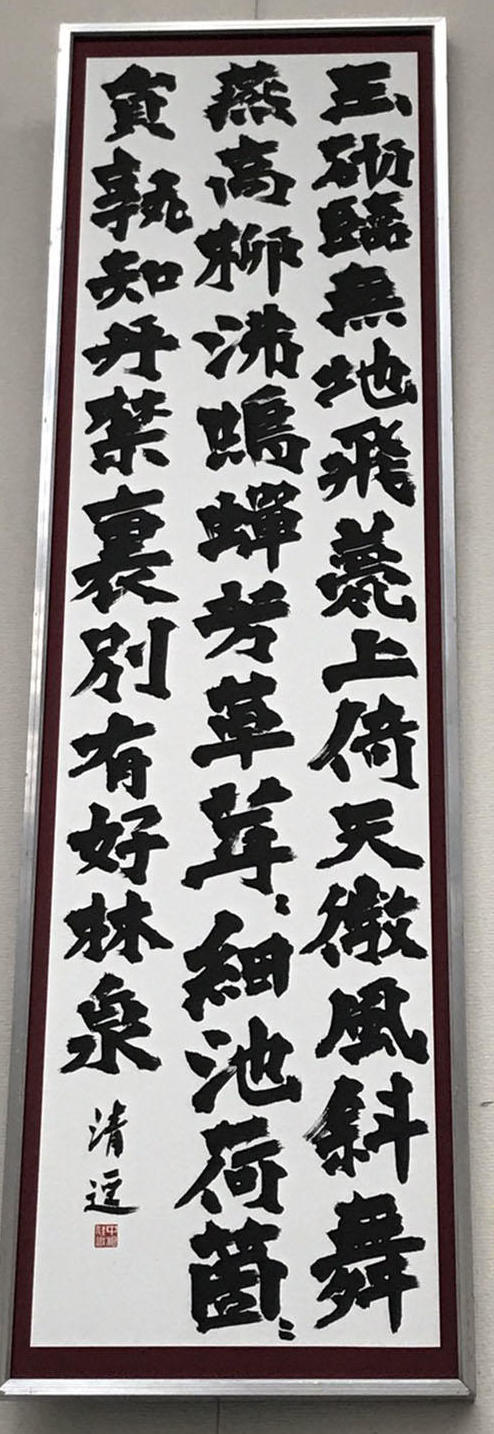 玉砌臨無地飛甍上倚天微風斜舞
燕高柳沸鳴蟬芳草茸〻細池荷箇〻
寅孰知丹禁裏別有好林泉
清逕